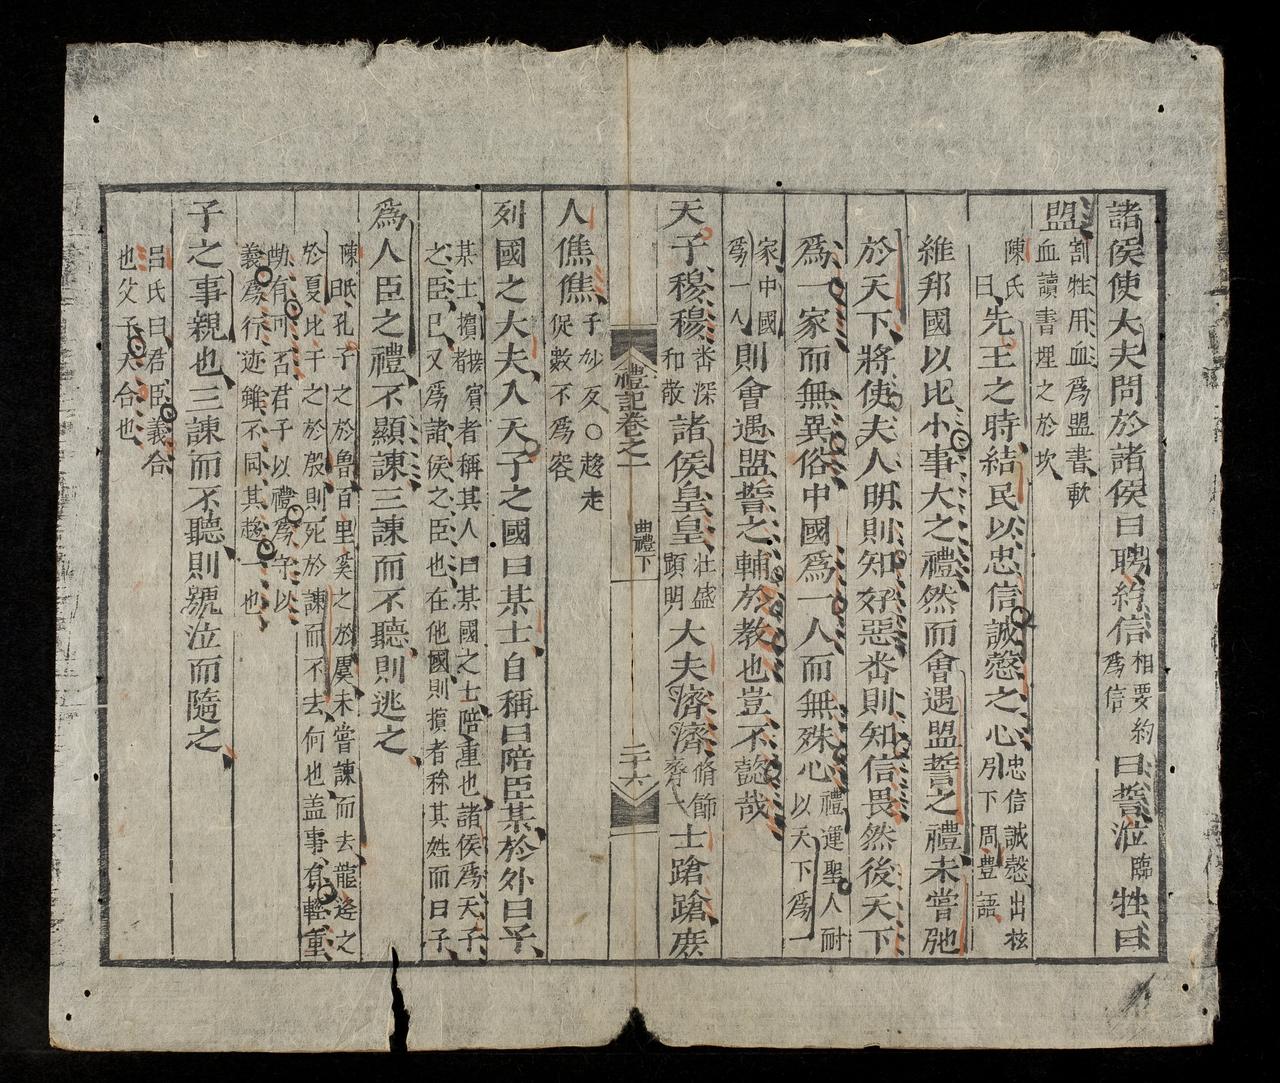 諸侯使大夫問於諸侯曰聘約信相要約爲信曰誓涖臨牲曰
盟割牲用血爲盟書歃血讀書埋之於坎
陳氏曰先王之時結民以忠信誠慤之心忠信誠慤出檀弓下周豊語
維邦國以比小事大之禮然而會遇盟誓之禮未嘗弛
於天下將使夫人明則知好惡畨則知信畏然後天下
爲一家而無異俗中國爲一人而無殊心禮運聖人耐以天下爲一
家中國爲一人則會遇盟誓之輔於教也豈不懿哉
天子穆穆畨深和敬諸侯皇皇壯盛顕明大夫濟濟脩飾齊一士蹌蹌庶
禮記卷之一
曲禮下
二十六
人僬僬子妙反○趍走促數不爲容
列國之大夫入天子之國曰某士自稱曰陪臣某於外曰子
某士擯者接賓者稱其人曰某國之士陪重也諸侯爲天子之臣已又爲諸侯之臣也在他國則擯者称其姓而曰子
爲人臣之禮不顯諫三諫而不聽則逃之
陳氏曰孔子之於魯百里奚之於虞未嘗諫而去龍逄之
於夏比干之於殷則死於諫而不去何也盖事有輕重
勢有可否君子以禮爲守以
義爲行迹雖不同其趍一也
子之事親也三諫而不聽則號泣而隨之
吕氏曰君臣義合
也父子天合也